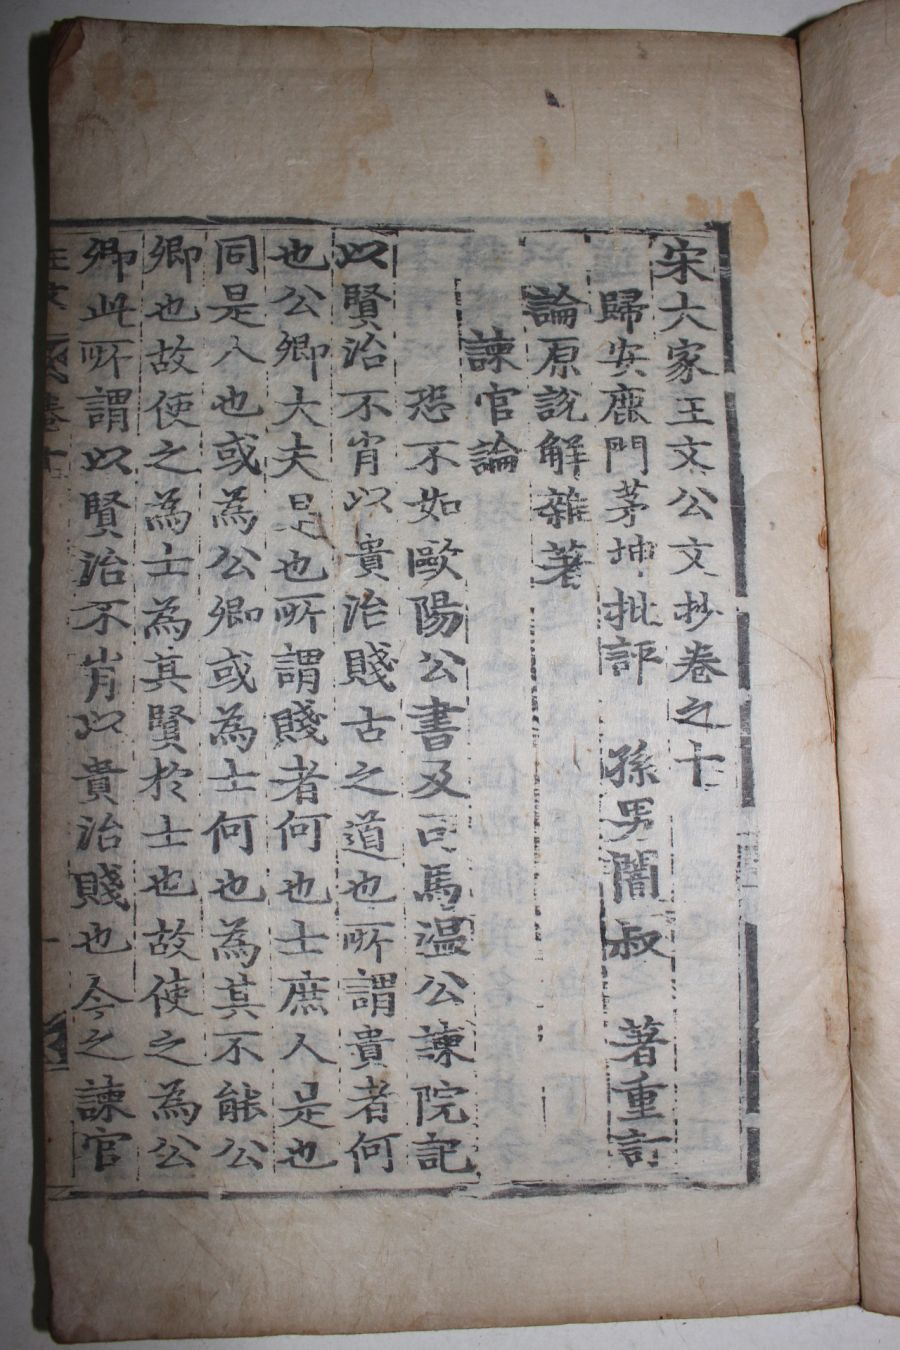 宋大家王文公文抄卷之十
歸安鹿門茅坤批評 孫男闇叔 著重訂
論原說解雜著
諫官論
恐不如歐陽公書及司馬温公諫院記
以賢治不肖以貴治賤古之道也所謂貴者何
也公卿大夫是也所謂賤者何也士庶人是也
同是人也或為公卿或為士何也為其不能公
卿也故使之為士為其賢於士也故使之為公
卿此所謂以賢治不肖以貴治賤也今之諫官